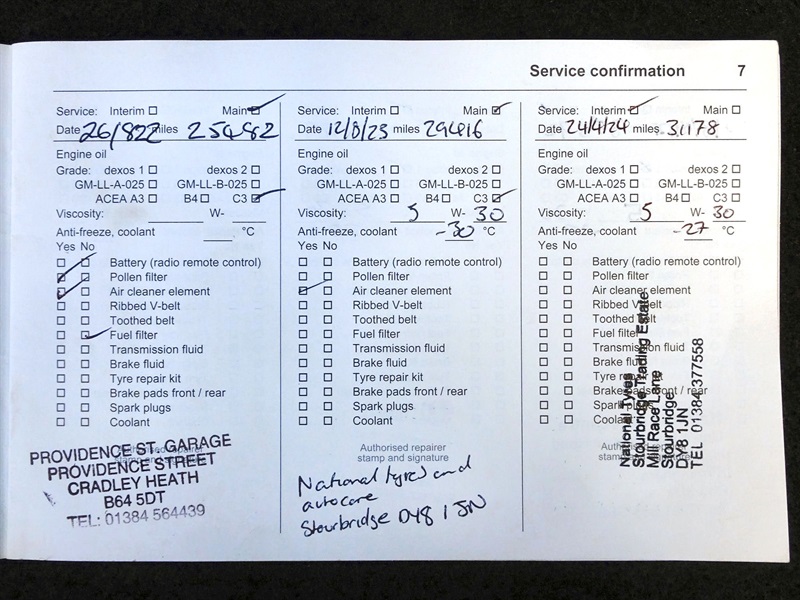 Service confirmation 7
Service: Interim Main
Date 26/822 miles 254982
Engine oil
Grade: dexos 1 dexos 2
GM-LL-A-025 GM-LL-B-025
ACEA A3 B4 C3
Viscosity: W-
Anti-freeze, coolant °C
Yes No
Battery (radio remote control)
Pollen filter
Air cleaner element
Ribbed V-belt
Toothed belt
Fuel filter
Transmission fluid
Brake fluid
Tyre repair kit
Brake pads front / rear
Spark plugs
Coolant
Authorised repairer
stamp and signature
PROVIDENCE ST. GARAGE
PROVIDENCE STREET
CRADLEY HEATH
B64 5DT
TEL: 01384 564439
Service: Interim Main
Date 12/8/23 miles 29416
Engine oil
Grade: dexos 1 dexos 2
GM-LL-A-025 GM-LL-B-025
ACEA A3 B4 C3
Viscosity: 5 W- 30
Anti-freeze, coolant -30 °C
Yes No
Battery (radio remote control)
Pollen filter
Air cleaner element
Ribbed V-belt
Toothed belt
Fuel filter
Transmission fluid
Brake fluid
Tyre repair kit
Brake pads front / rear
Spark plugs
Coolant
Authorised repairer
stamp and signature
National tyres and
autocare
Stourbridge DY8 1JN
Service: Interim Main
Date 24/4/24 miles 31178
Engine oil
Grade: dexos 1 dexos 2
GM-LL-A-025 GM-LL-B-025
ACEA A3 B4 C3
Viscosity: 5 W- 30
Anti-freeze, coolant -27 °C
Yes No
Battery (radio remote control)
Pollen filter
Air cleaner element
Ribbed V-belt
Toothed belt
Fuel filter
Transmission fluid
Brake fluid
Tyre repair kit
Brake pads front / rear
Spark plugs
Coolant
Authorised repairer
stamp and signature
National Tyres
Stourbridge Trading Estate
Mill Race Lane
Stourbridge
DY8 1JN
TEL 01384 377558